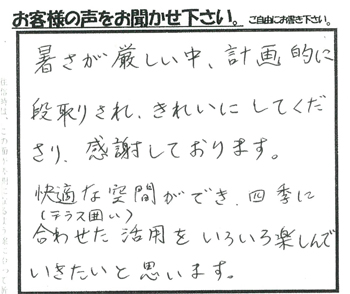 お客様の声をお聞かせ下さい。ご自由にお書き下さい。
暑さが厳しい中、計画的に
段取りされ、きれいに してくだ
さり、感謝しております。
快適な空間ができ、四季に
(テラス囲い)
合わせた 活用を いろいろ楽しんで
いきたいと思います。